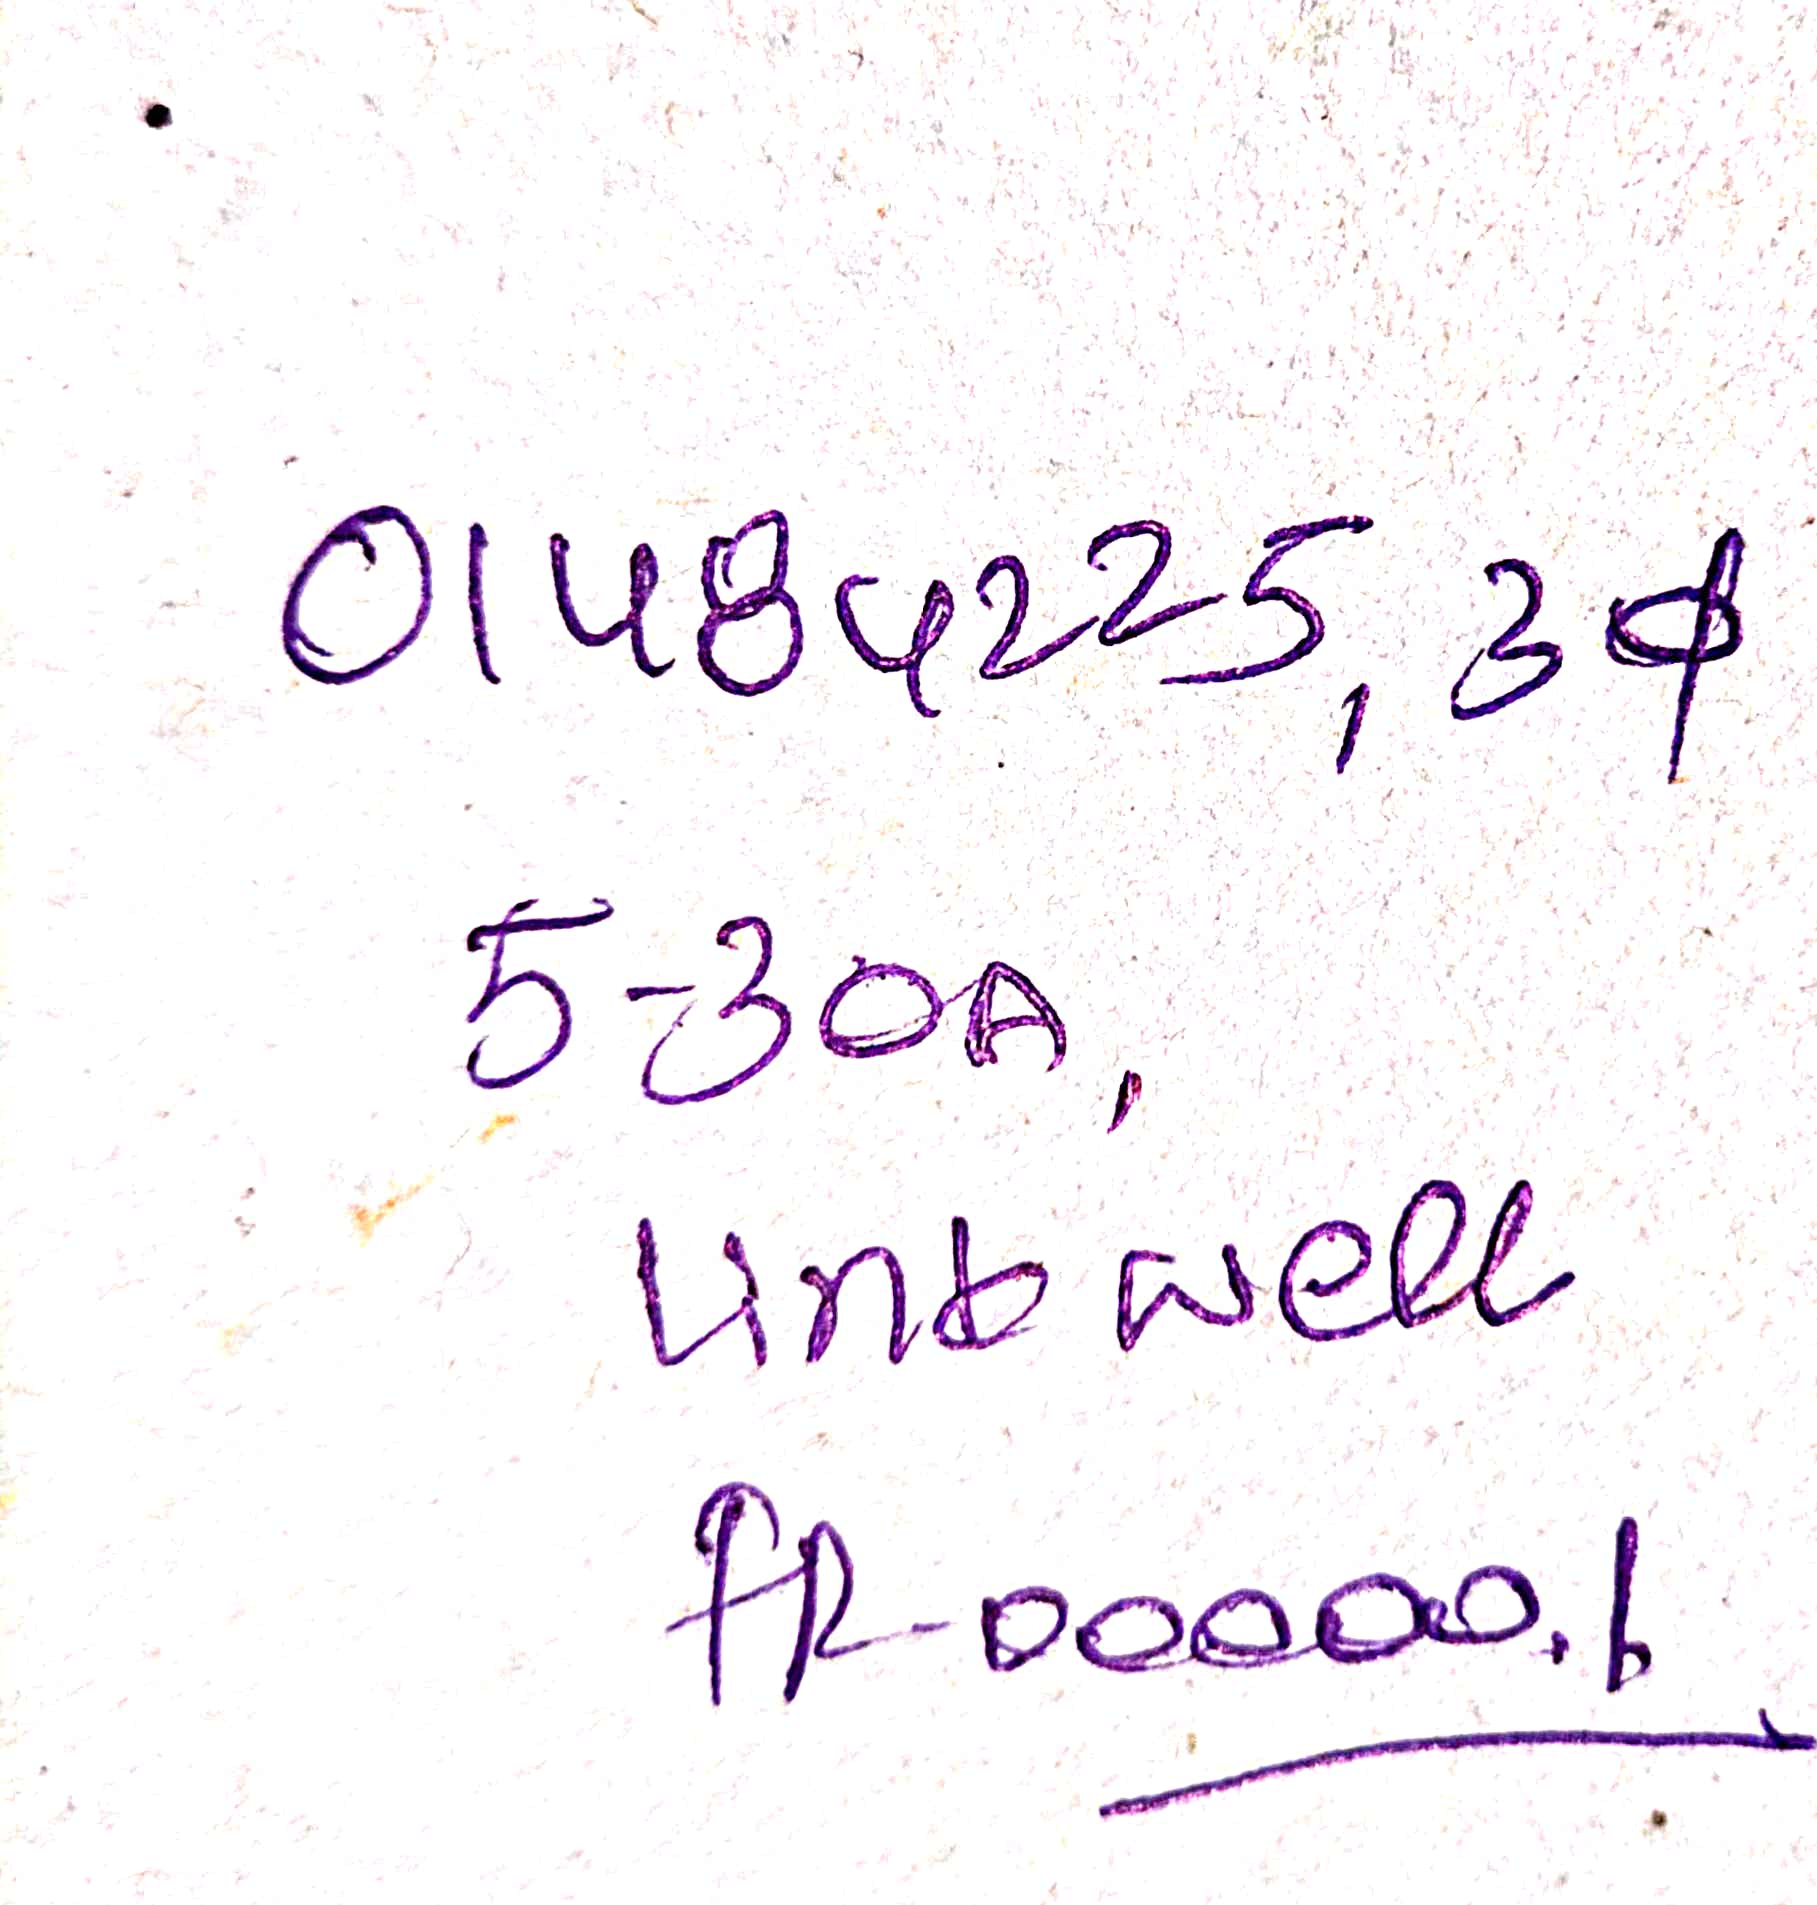 01484225, 3φ
5-30A,
Linkwell
PR-00000.1